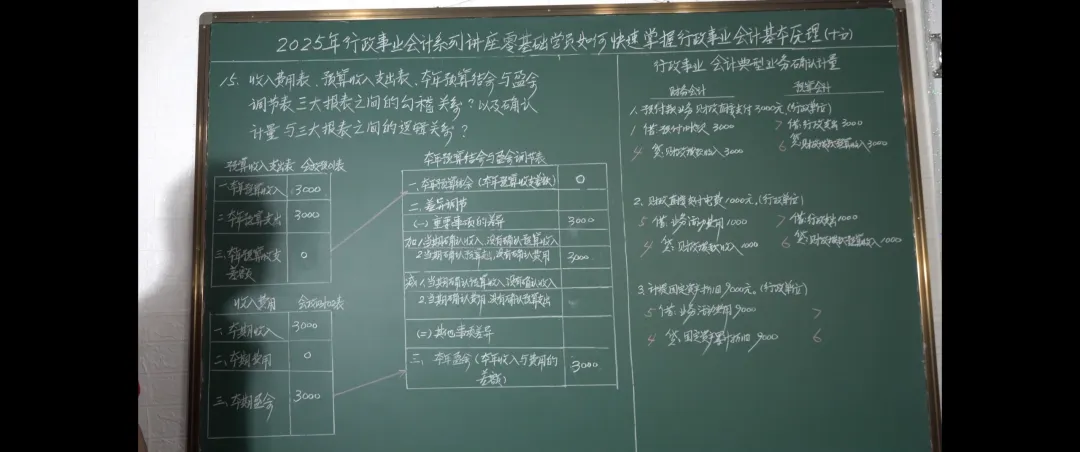 2025年行政事业会计系列讲座零基础学员如何快速掌握行政事业会计基本原理(十六)
15. 收入费用表、预算收入支出表、本年预算结余与盈余
调节表三大报表之间的勾稽关系？以及确认
计量与三大报表之间的逻辑关系？
预算收入支出表 会政预01表
一、本年预算收入 3000
二、本年预算支出 3000
三、本年预算收支
差额 0
收入费用 会政财02表
一、本期收入 3000
二、本期费用 0
三、本期盈余 3000
本年预算结余与盈余调节表
一、本年预算结余（本年预算收支差额） 0
二、差异调节
(一)重要事项的差异 3000
加：1.当期确认收入没有确认预算收入
2.当期确认预算支出没有确认费用 3000
减：1.当期确认预算收入没有确认收入
2.当期确认费用没有确认预算支出
(二)其他事项差异
三、本年盈余（本年收入与费用的
差额） 3000
行政事业会计典型业务确认计量
财务会计 预算会计
1.预付款业务 财政直接支付3000元(行政单位)
1 借:预付账款 3000 7 借:行政支出 3000
4 贷:财政拨款收入 3000 6 贷:财政拨款预算收入 3000
2.财政直接支付电费1000元。(行政单位)
5 借:业务活动费用 1000 7 借:行政支出 1000
4 贷:财政拨款收入 1000 6 贷:财政拨款预算收入 1000
3.计提固定资产折旧9000元。(行政单位)
5 借:业务活动费用 9000 7
4 贷:固定资产累计折旧 9000 6